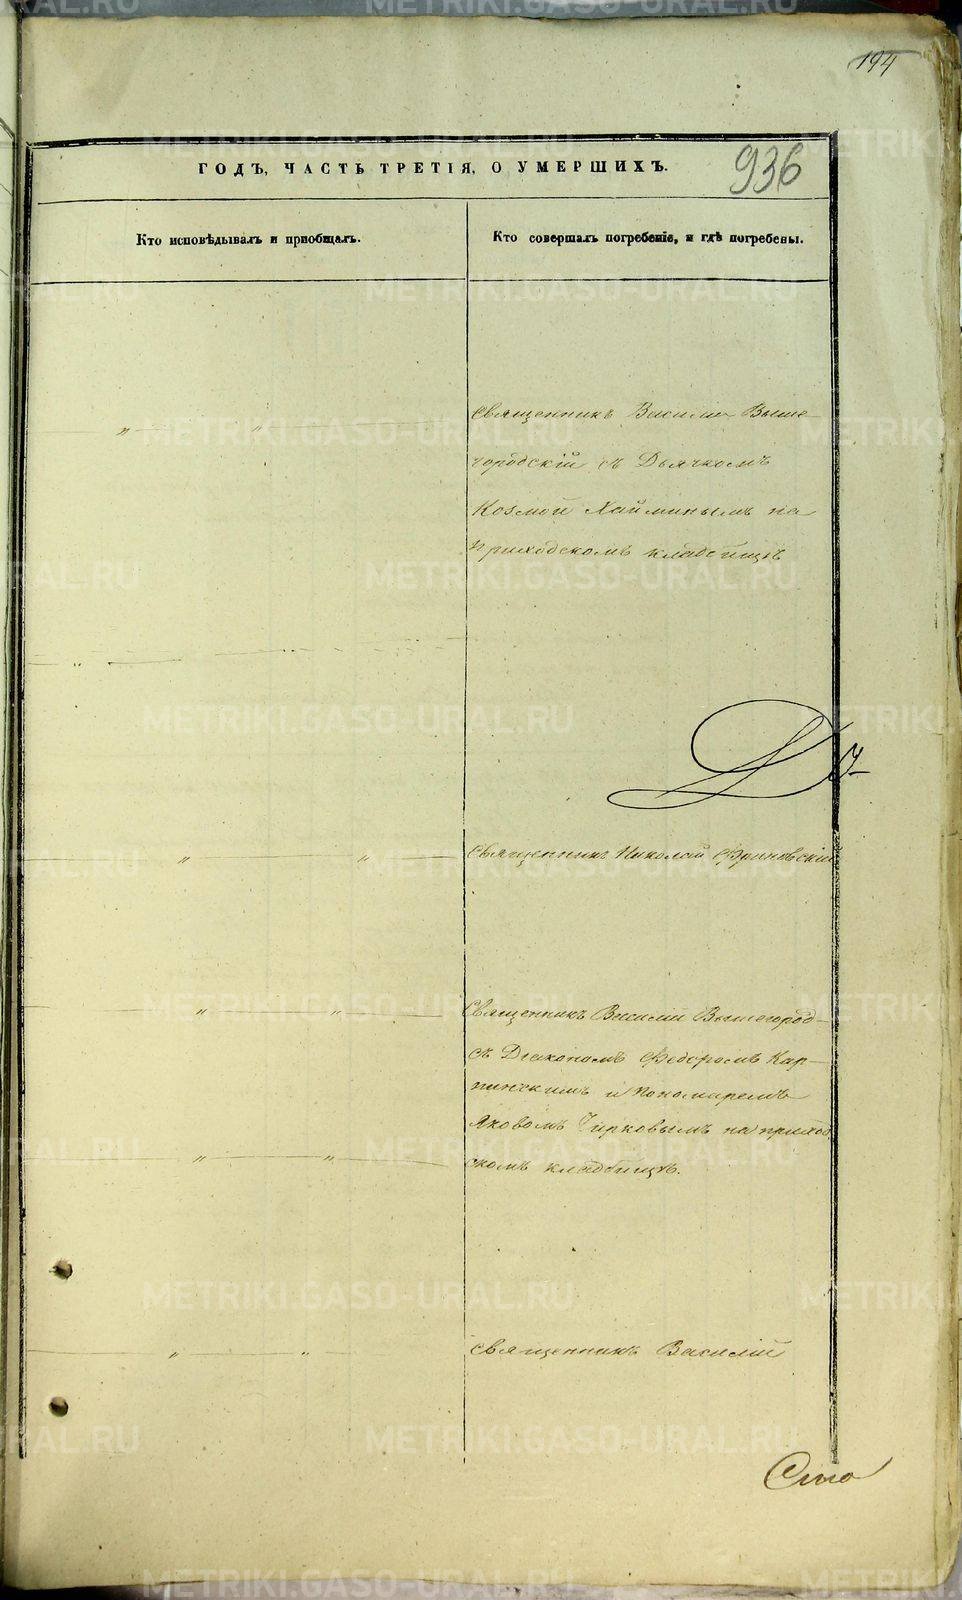 194
ГОДЪ, ЧАСТЬ ТРЕТІЯ, О УМЕРШИХЪ.
936
Кто исповѣдывалъ и пріобщалъ.
Кто совершалъ погребеніе, и гдѣ погребены.
священникъ Василій Выше-
городскій съ Дьячкомъ
Козмой Хайминымъ на
приходскомъ кладбищѣ
священникъ Николай Фриновскій
Священникъ Василій Вышегород-
съ Діакономъ Федоромъ Кар-
пинскимъ и Пономаремъ
Яковомъ Чирковымъ на приход
скомъ кладбищѣ.
священникъ Василій
Сто
METRIKI.GASO-URAL.RU